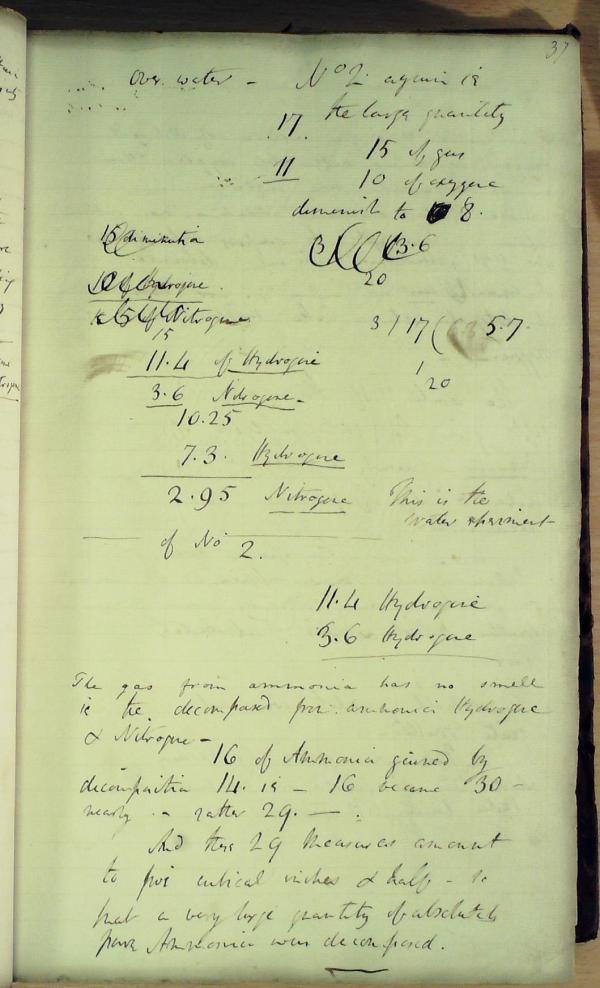 37
over water - No 2. again is
the large quantity
17
11
15 of gas
10 of oxygene
diminish to 8.
15 diminution
3 3.6
20
10 of Hydrogene.
5 of Nitrogene
3 ) 17 ( 5.7
1
20
15
11.4 of Hydrogene
3.6 Nitrogene -
10.25
7.3. Hydrogene
2.95 Nitrogene This is the
water experiment
of No 2.
11.4 Hydrogene
3.6 Hydrogene
The gas from ammonia has no smell
ie the decomposed pure ammonia Hydrogene
& Nitrogene -
16 of Ammonia gained by
decomposition 14. ie - 16 became 30 -
nearly - rather 29. -
And these 29 measures amount
to five cubical inches & half - so
that a very large quantity of absolutely
pure Ammonia was decomposed.